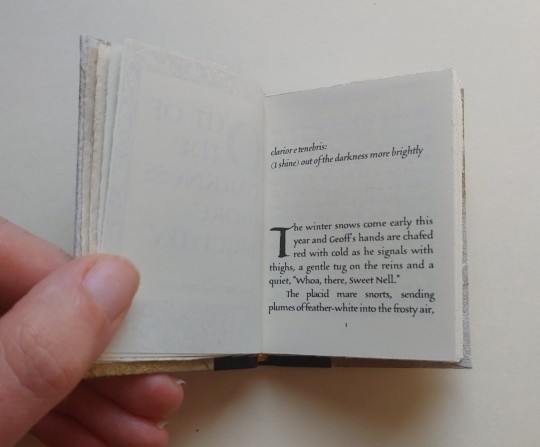 clarior e tenebris:
(I shine) out of the darkness more brightly
The winter snows come early this
year and Geoff's hands are chafed
red with cold as he signals with
thighs, a gentle tug on the reins and a
quiet, "Whoa, there, Sweet Nell."
The placid mare snorts, sending
plumes of feather-white into the frosty air,
1